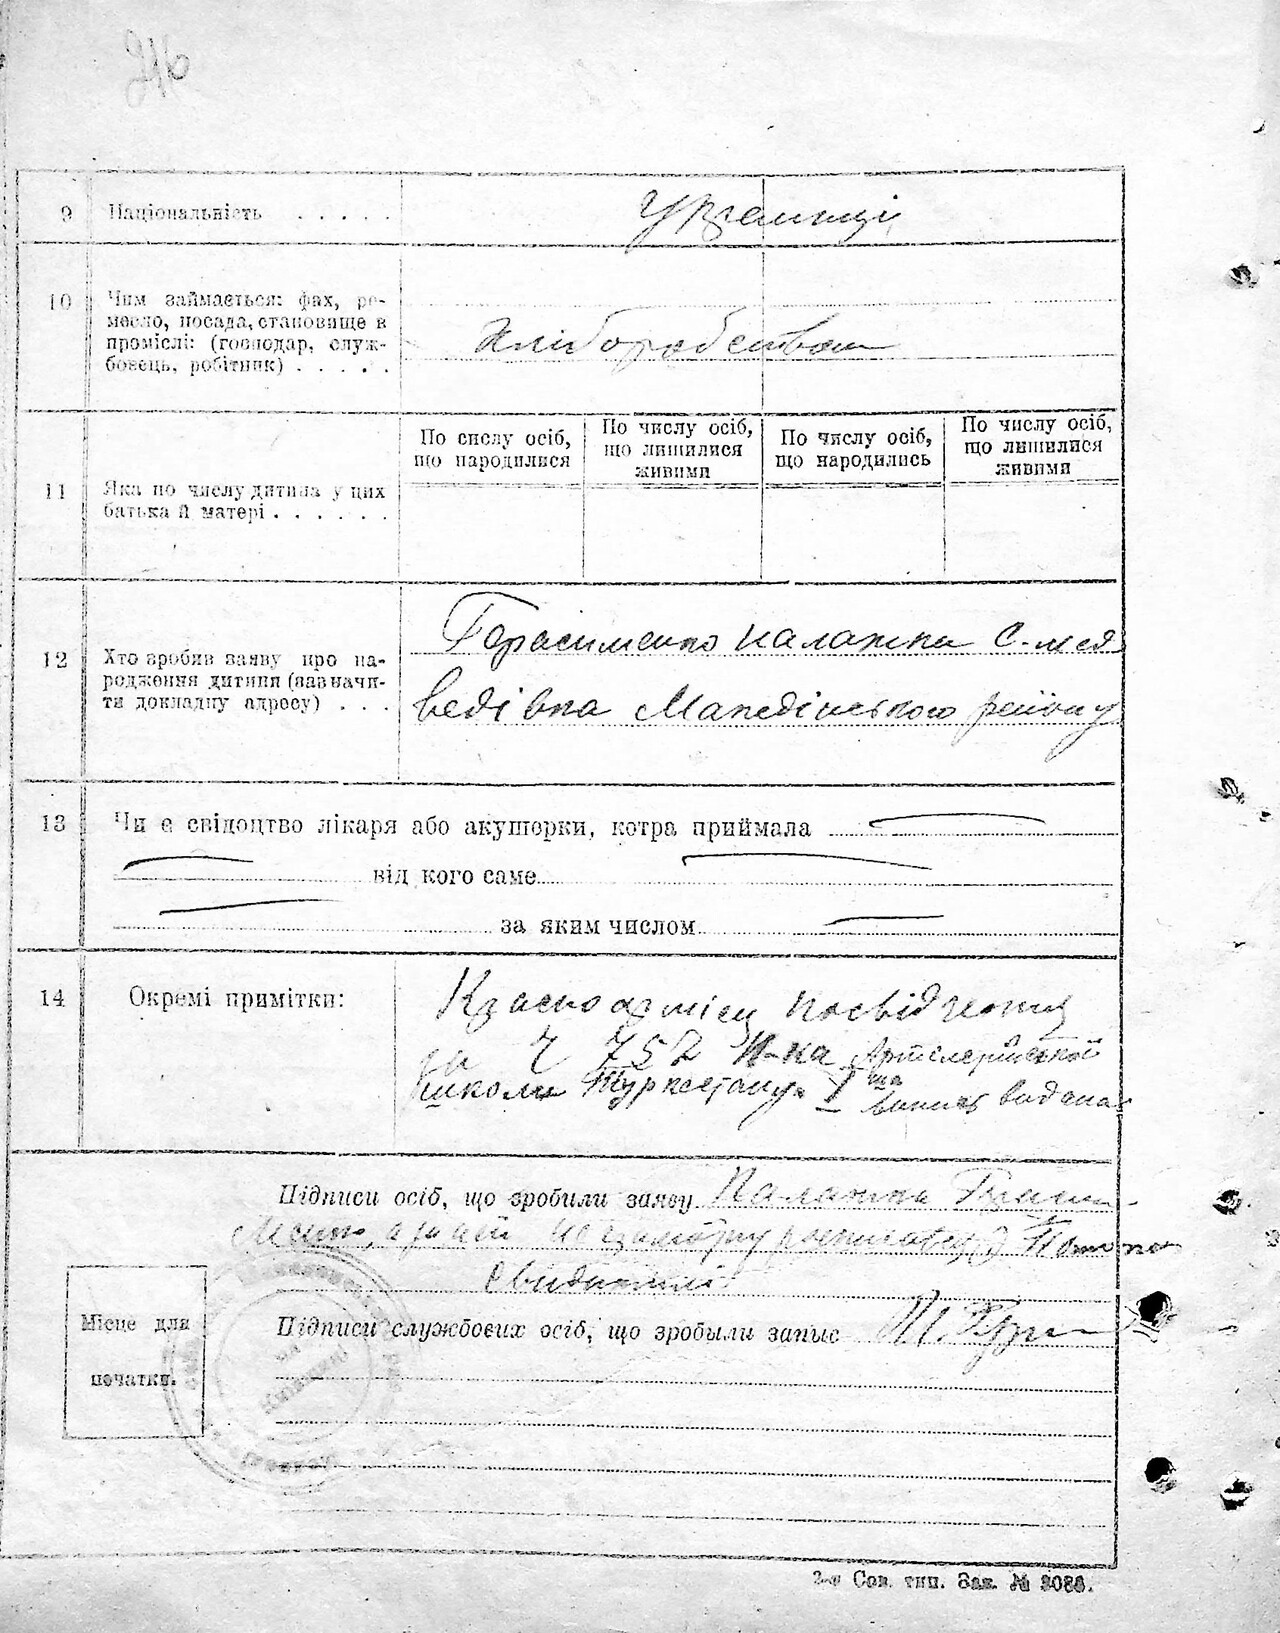 246
9 Національність . . . . .
Українці
10 Чим займається: фах, ре-
месло, посада, становище в
проміслі: (господар, служ-
бовець, робітник) . . . . .
Хліборобством
11 Яка по числу дитина у цих
батька й матері . . . . . .
По числу осіб,
що народилися
По числу осіб,
що лишилися
живими
По числу осіб,
що народились
По числу осіб,
що лишилися
живими
12 Хто зробив заяву про на-
родження дитини (назначи-
ти докладну адресу) . . .
Герасименко Палажка С. Мед
ведівка Маведівського району
13 Чи є свідоцтво лікаря або акушорки, котра приймала
від кого саме
за яким числом
14 Окремі примітки:
Красноармієц посвідчення
за Ч 752 Н-ка Артилерійської
школи Туркестану видана
Підписи осіб, що зробили заяву Палажка Гераси-
менко, а за неї неграмотну
Підписи службових осіб, що зробыли запис
Місце для
печатки.
2-я Сов. тип. Зак. № 3086.